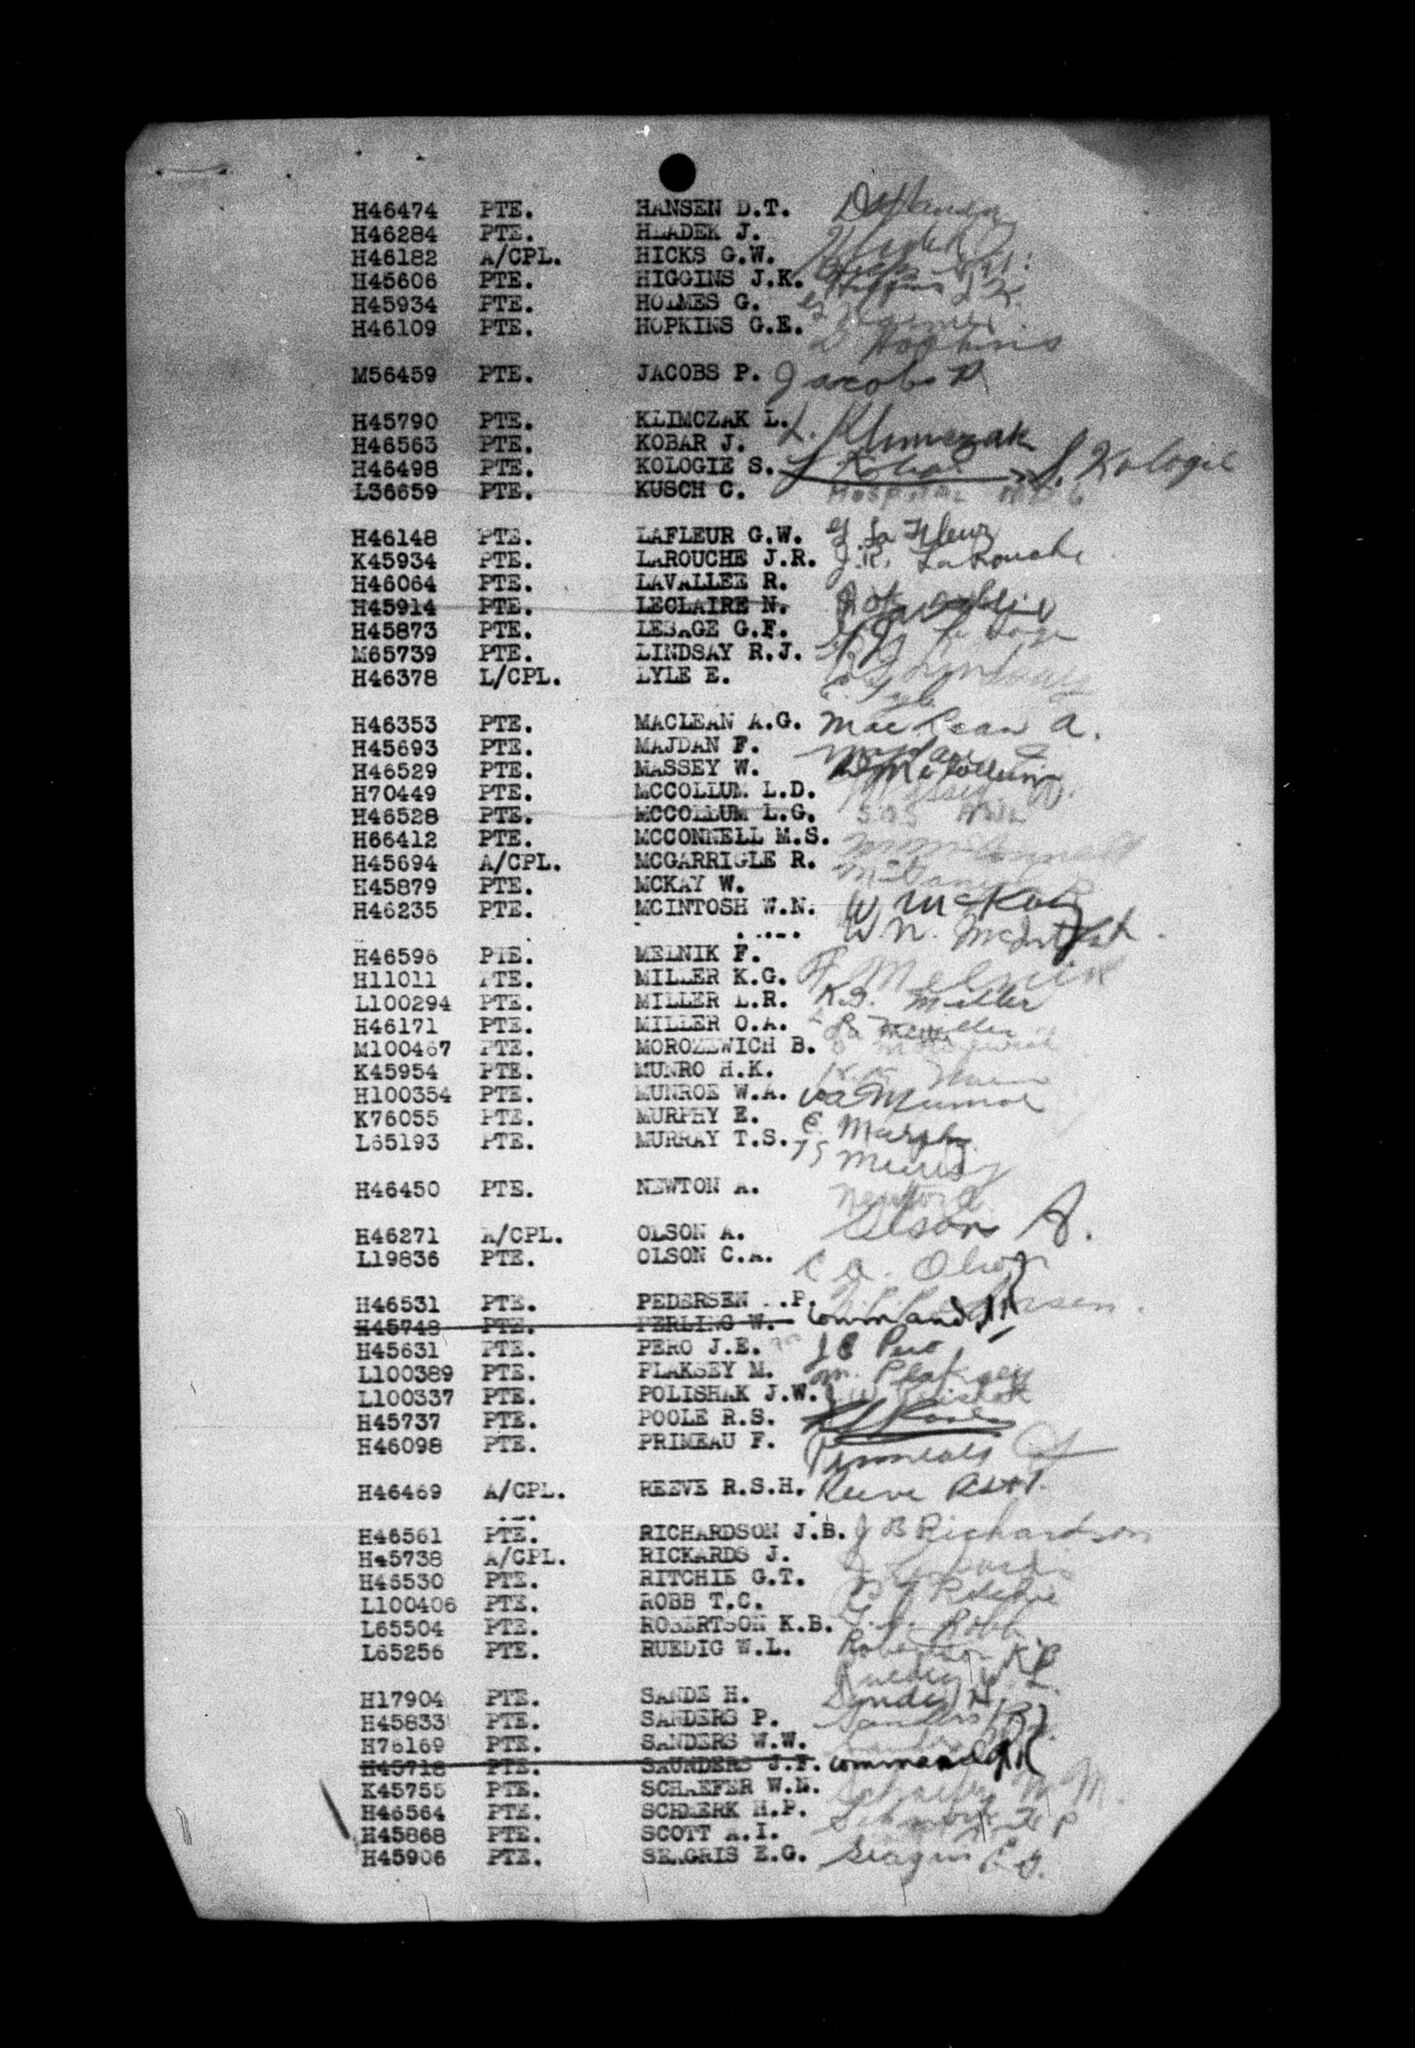 H46474 PTE. HANSEN D.T.
H46284 PTE. HLADEK J.
H46182 A/CPL. HICKS G.W.
H45606 PTE. HIGGINS J.K. Higgins J.K.
H45934 PTE. HOLMES G.
H46109 PTE. HOPKINS G.E. Hopkins
M56459 PTE. JACOBS P. Jacobs P
H45790 PTE. KLIMCZAK L. L. Klimczak
H46563 PTE. KOBAR J. J Kobar
H46498 PTE. KOLOGIE S. S. Kologie
L36659 PTE. KUSCH C. Hospital
H46148 PTE. LAFLEUR G.W. G. La Fleur
K45934 PTE. LAROUCHE J.R. J.R. Larouche
H46064 PTE. LAVALLEE R.
H45914 PTE. LECLAIRE N.
H45873 PTE. LESAGE G.F.
M65739 PTE. LINDSAY R.J.
H46378 L/CPL. LYLE E.
H46353 PTE. MACLEAN A.G. MacLean A.
H45693 PTE. MAJDAN F.
H46529 PTE. MASSEY W.
H70449 PTE. MCCOLLUM L.D. McCollum
H46528 PTE. MCCOLLUM L.G. SOS
H66412 PTE. MCCONNELL M.S.
H45694 A/CPL. MCGARRIGLE R.
H45879 PTE. MCKAY W. W McKay
H46235 PTE. MCINTOSH W.N. W.N. McIntosh
H46596 PTE. MELNIK F. F Melnik
H11011 PTE. MILLER K.G. K.G. Miller
L100294 PTE. MILLER L.R. L R Miller
H46171 PTE. MILLER O.A.
M100467 PTE. MOROZEWICH B.
K45954 PTE. MUNRO H.K.
H100354 PTE. MUNROE W.A. WA Munroe
K76055 PTE. MURPHY E. E. Murphy
L65193 PTE. MURRAY T.S. TS Murray
H46450 PTE. NEWTON A. Newton A.
H46271 A/CPL. OLSON A. Olson A.
L19836 PTE. OLSON C.A. C A. Olson
H46531 PTE. PEDERSEN .P. Pedersen.
H45748 PTE. PERLING W. Command
H45631 PTE. PERO J.E. J E Pero
L100389 PTE. PLAKSEY M. M. Plaksey
L100337 PTE. POLISHAK J.W.
H45737 PTE. POOLE R.S.
H46098 PTE. PRIMEAU F. Primeau F
H46469 A/CPL. REEVE R.S.H. Reeve RSH.
H46561 PTE. RICHARDSON J.B. J B Richardson
H45738 A/CPL. RICKARDS J. J Rickards
H46530 PTE. RITCHIE G.T. G T Ritchie
L100406 PTE. ROBB T.C. T.C. Robb
L65504 PTE. ROBERTSON K.B. Robertson KB
L65256 PTE. RUEDIG W.L. Ruedig W.L.
H17904 PTE. SANDE H. Sande H.
H45833 PTE. SANDERS P. Sanders P.
H76169 PTE. SANDERS W.W.
H45718 PTE. SAUNDERS J.F. Command
K45755 PTE. SCHAEFER W.N.
H46564 PTE. SCHMERK H.P. Schmerk H P
H45868 PTE. SCOTT A.I.
H45906 PTE. SEAGRIS E.G. Seagris E G.